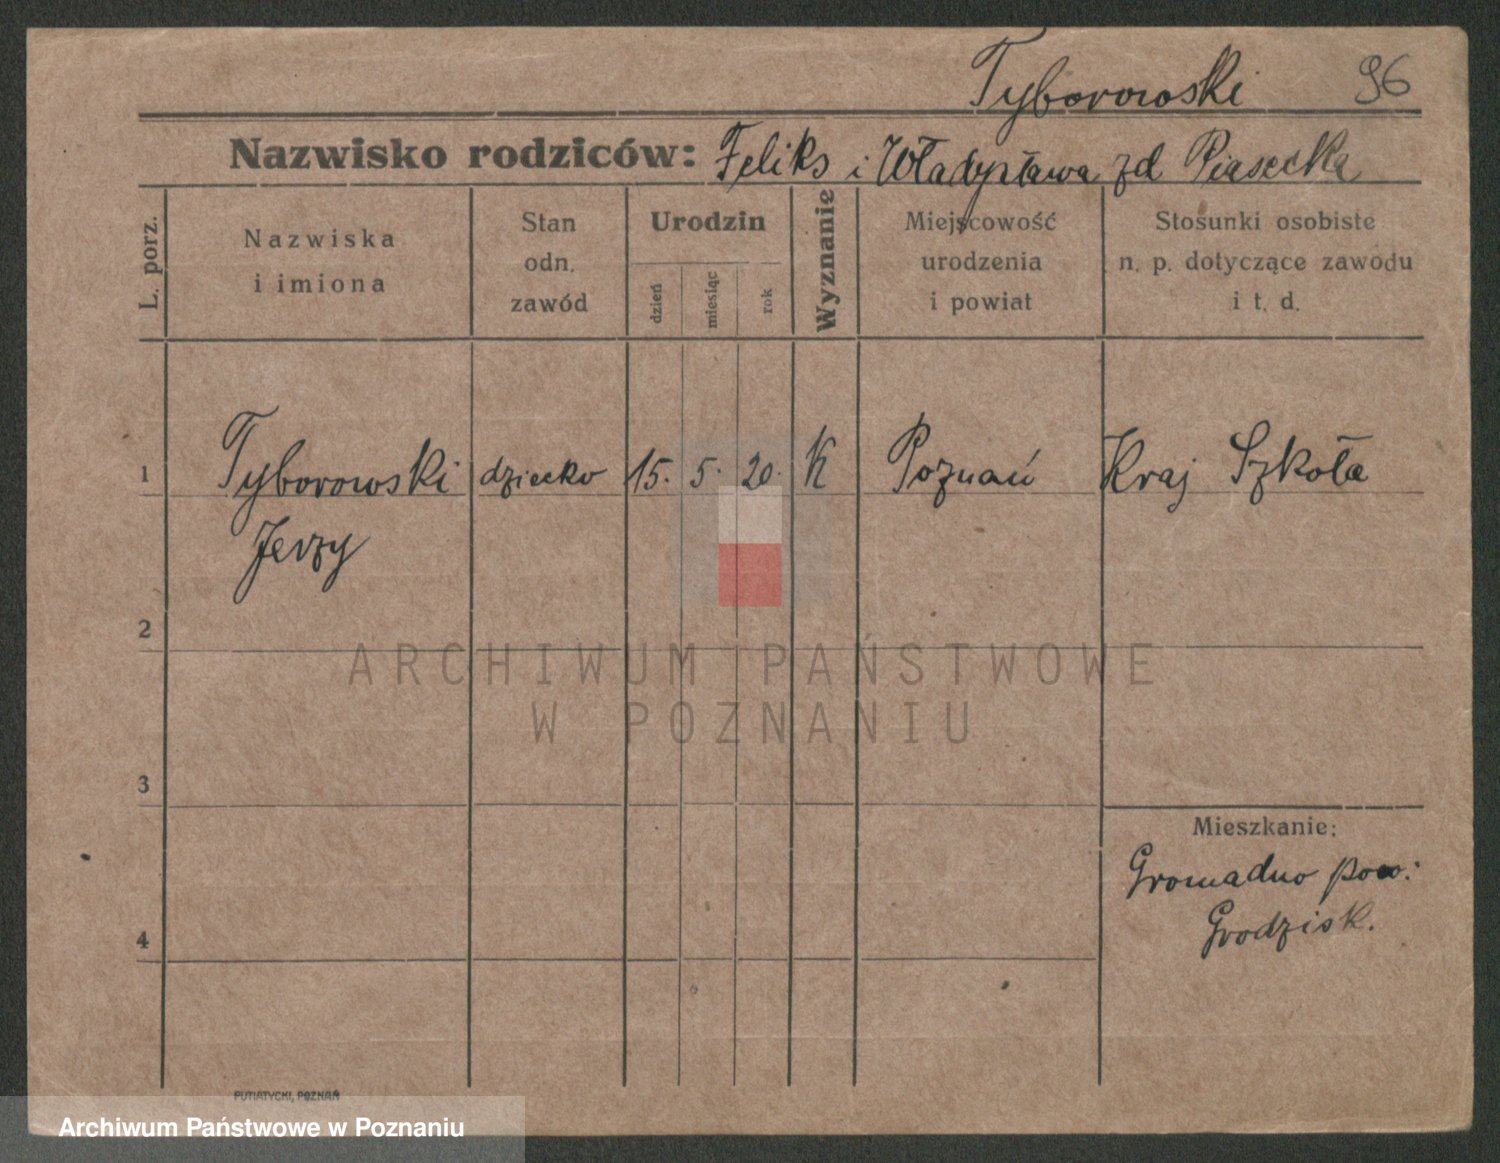 Tyborowski 96
Nazwisko rodziców: Feliks i Władysława zd Piasecka
L. porz.
Nazwiska
i imiona
Stan
odn.
zawód
Urodzin
dzień
miesiąc
rok
Wyznanie
Miejscowość
urodzenia
i powiat
Stosunki osobiste
n. p. dotyczące zawodu
i t. d.
1 Tyborowski dziecko 15. 5. 20. K Poznań Kraj Szkoła
Jerzy
2
ARCHIWUM PAŃSTWOWE
W POZNANIU
3
Mieszkanie:
Gromadno pow.
Grodzisk.
4
PUTIATYCKI, POZNAŃ
Archiwum Państwowe w Poznaniu